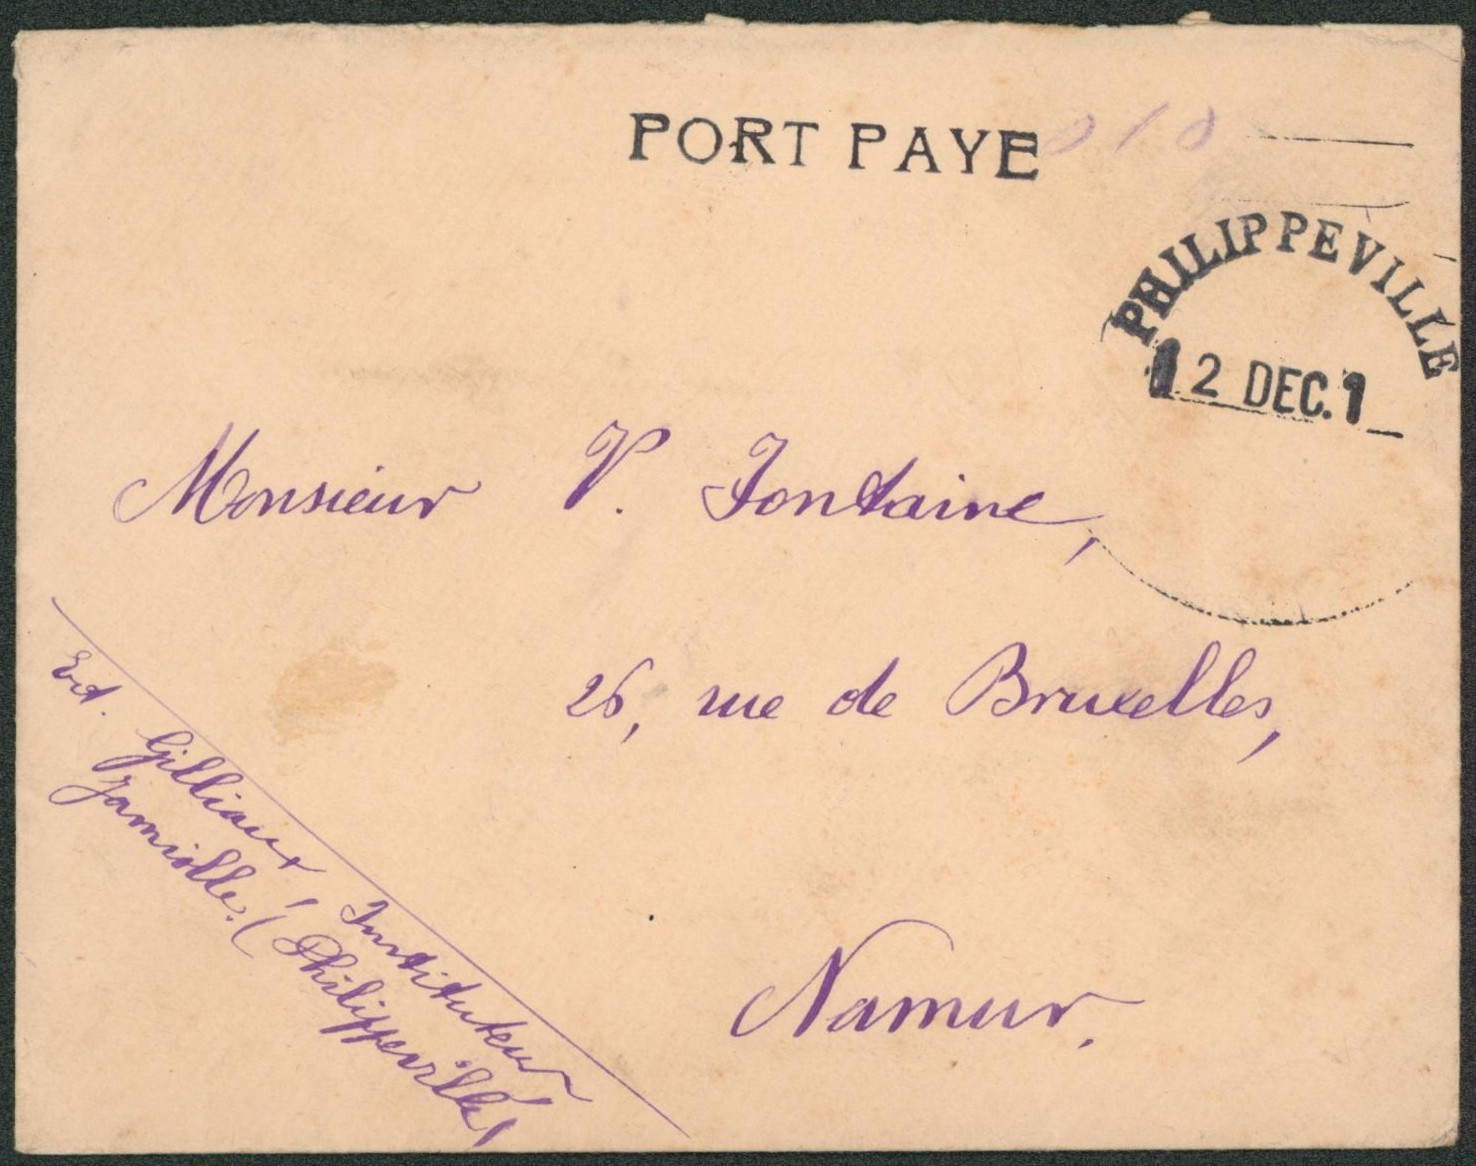 PORT PAYE
010
PHILIPPEVILLE
12 DEC. 1
Monsieur V. Fontaine,
26, rue de Bruxelles,
Namur.
Ed. Gilliaux, Instituteur,
Jamiolle. (Philippeville)